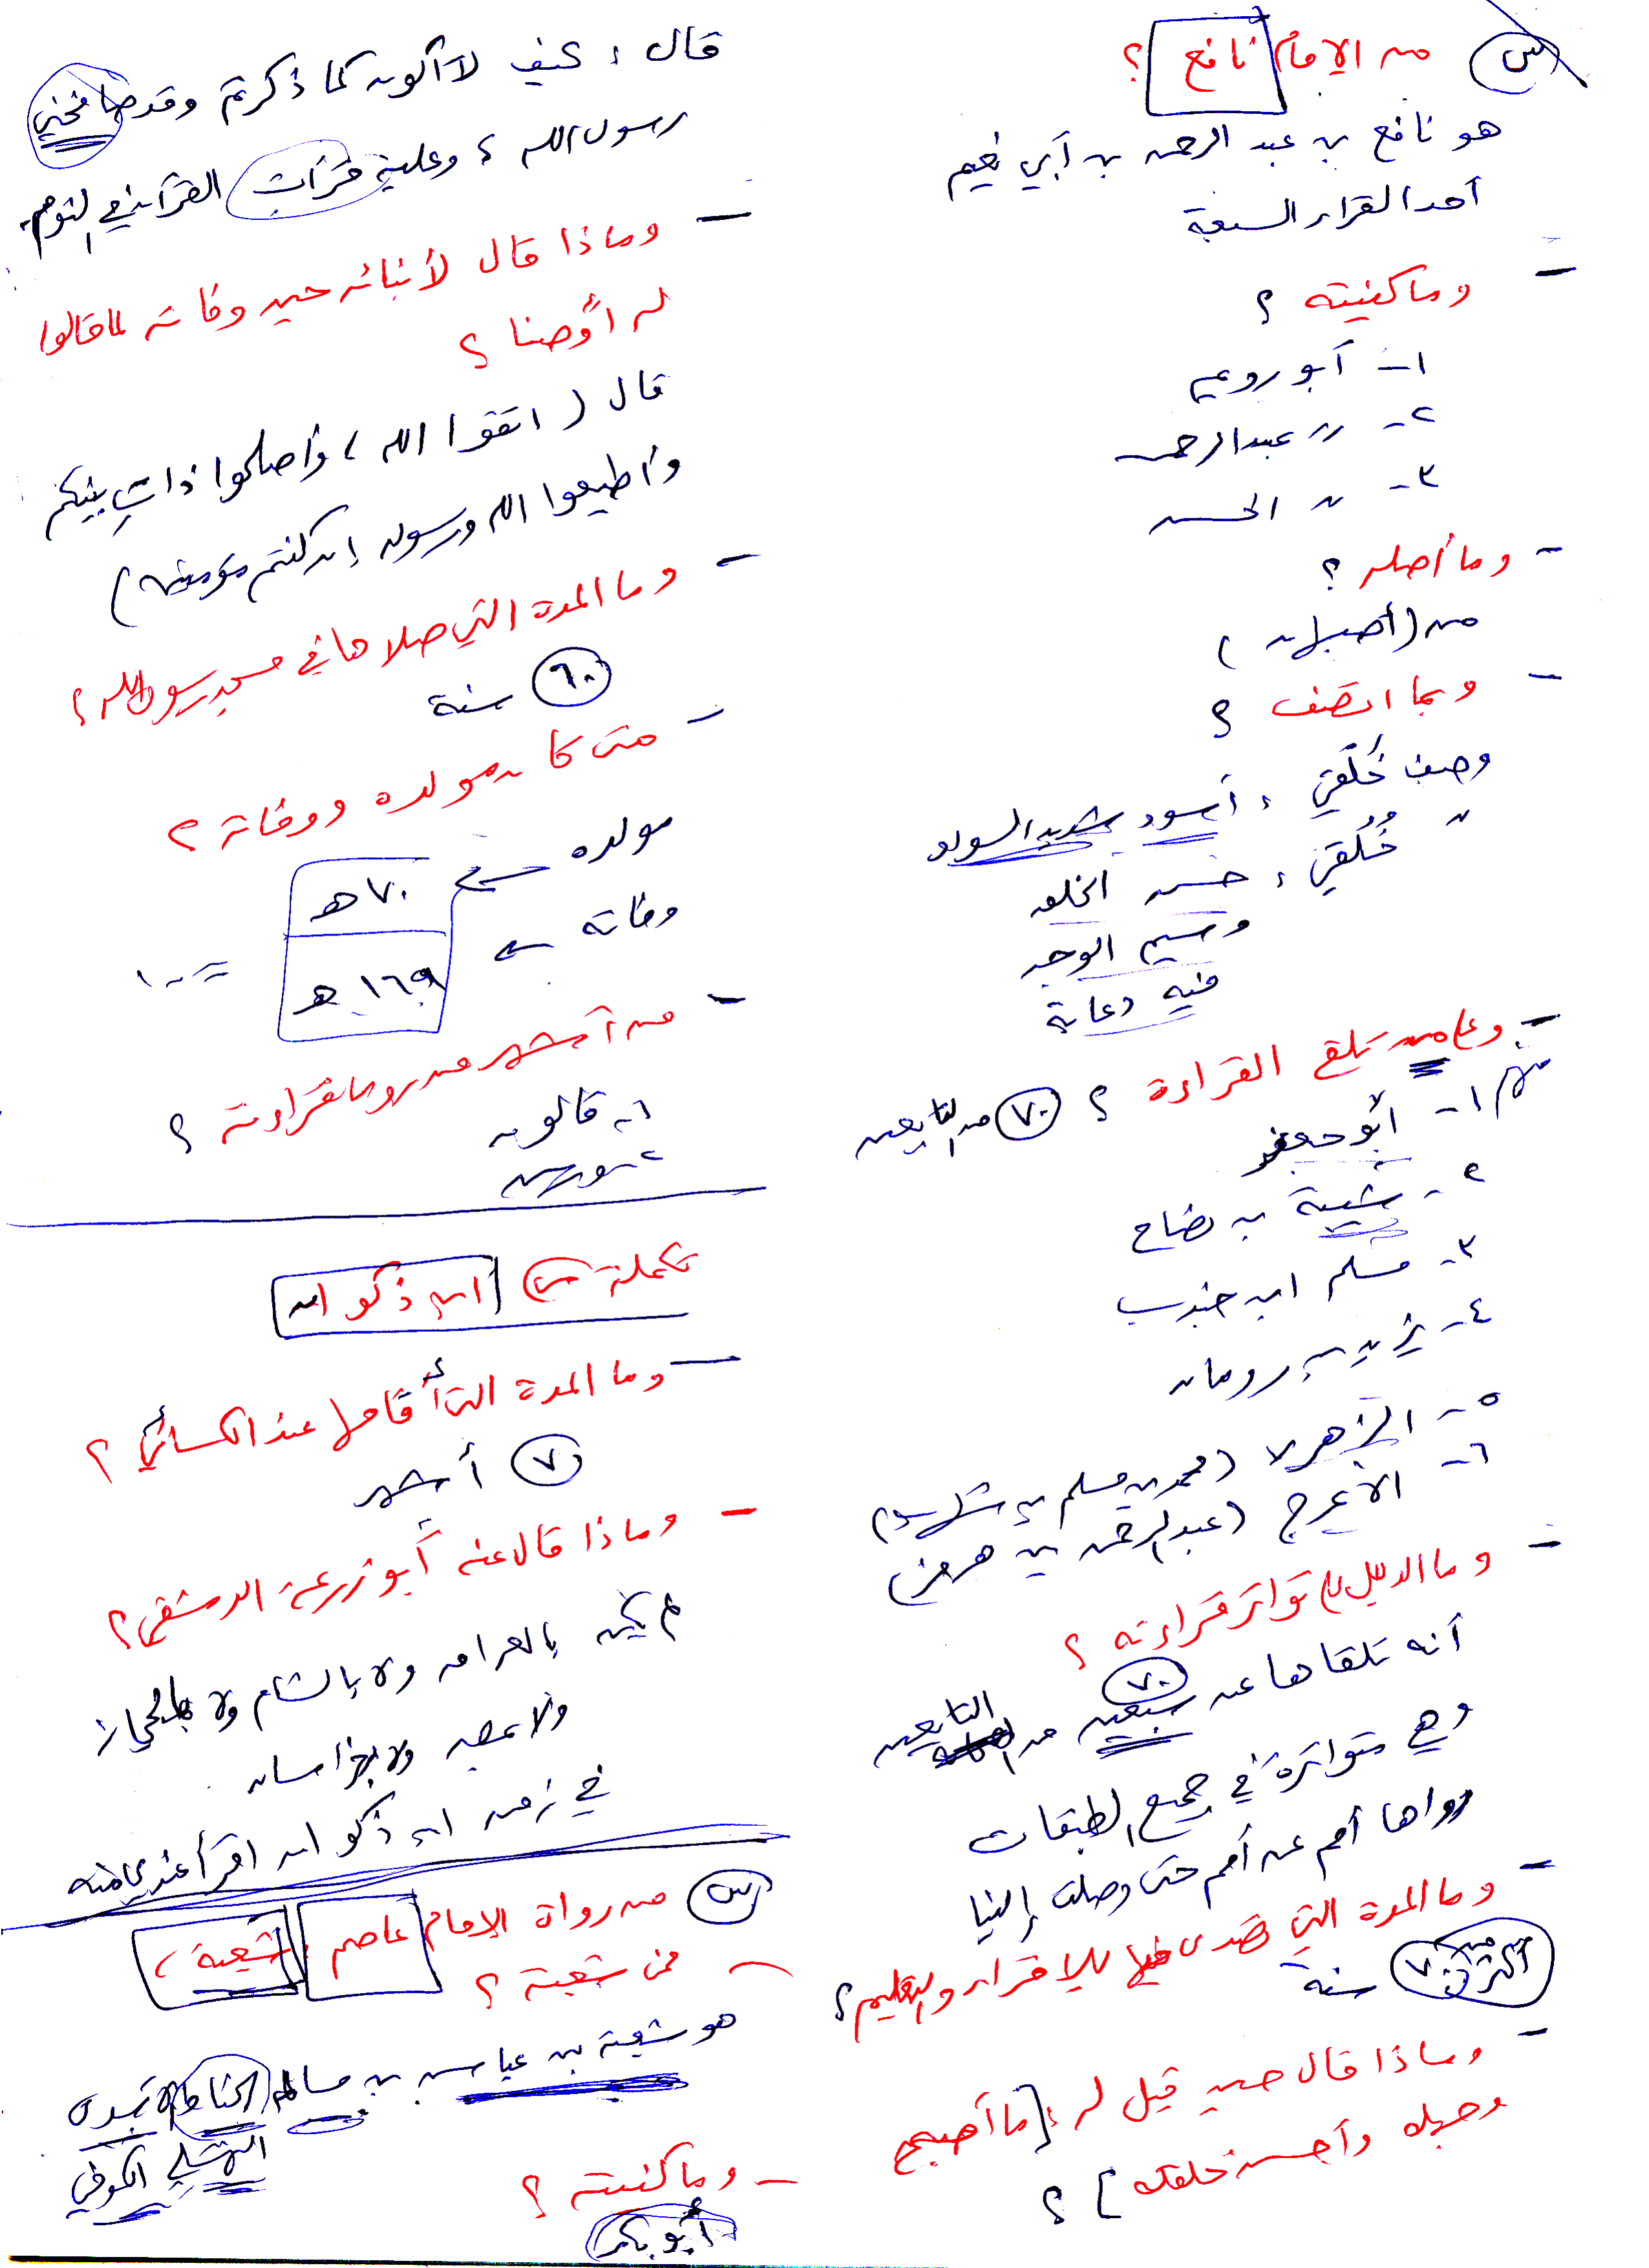 س من الإمام نافع ؟
هو نافع بن عبد الرحمن بن أبي نعيم
أحد القراء السبعة
- وما كنيته ؟
١- أبو رويم
٢- // عبد الرحمن
٣- // الحسن
- وما أصله ؟
من (أصبهان)
- وبما اتصف ؟
وصف خَلْقي : أسود شديد السواد
// خُلُقي : حسن الخلق
وسيم الوجه
فيه دعابة
- وعلى من تلقى القراءة ؟ ٧٠ من التابعين
منهم ١- أبو جعفر
٢- شيبة بن نصاح
٣- مسلم ابن جندب
٤- يزيد بن رومان
٥- الزهري (محمد بن مسلم بن شهاب)
٦- الأعرج (عبد الرحمن بن هرمز)
- وما الدليل على تواتر قراءته ؟
أنه تلقاها عن سبعين ٧٠ من التابعين
وهي متواترة في جميع الطبقات
رواها أمم عن أمم حتى وصلت إلينا
- وما المدة التي تصدى فيها للإقراء والتعليم ؟
أكثر من ٧٠ سنة
- وماذا قال حين قيل له : [ ما أصبح
وجهك وأحسن خلقك ] ؟
قال : كيف لا أكون كما ذكرتم وقد صافحني
رسول الله ، وعليه قرأت القرآن في النوم.
- وماذا قال لأبنائه حين وفاته لما قالوا
له أوصنا ؟
قال ( اتقوا الله ، وأصلحوا ذات بينكم
وأطيعوا الله ورسوله إن كنتم مؤمنين )
- وما المدة التي صلاها في مسجد رسول الله ؟
٦٠ سنة
- متى كان مولده ووفاته ؟
مولده ← ٧٠ هـ
وفاته ← ١٦٩ هـ = ١٠٠
- من أشهر من روى قراءته ؟
١- قالون
٢- ورش
تكملة س ابن ذكوان
- وما المدة التي أقامها عند الكسائي ؟
٧ أشهر
- وماذا قال عنه أبو زرعة الدمشقي ؟
لم يكن بالعراق ولا بالشام ولا بالحجاز
ولا بمصر ولا بخراسان
في زمن ابن ذكوان أقرأ عندي منه
س من رواة الإمام عاصم شعبة ،
- فمن شعبة ؟
هو شعبة بن عياش بن سالم الحناط الأسدي
النهشلي الكوفي
- وما كنيته ؟
أبو بكر